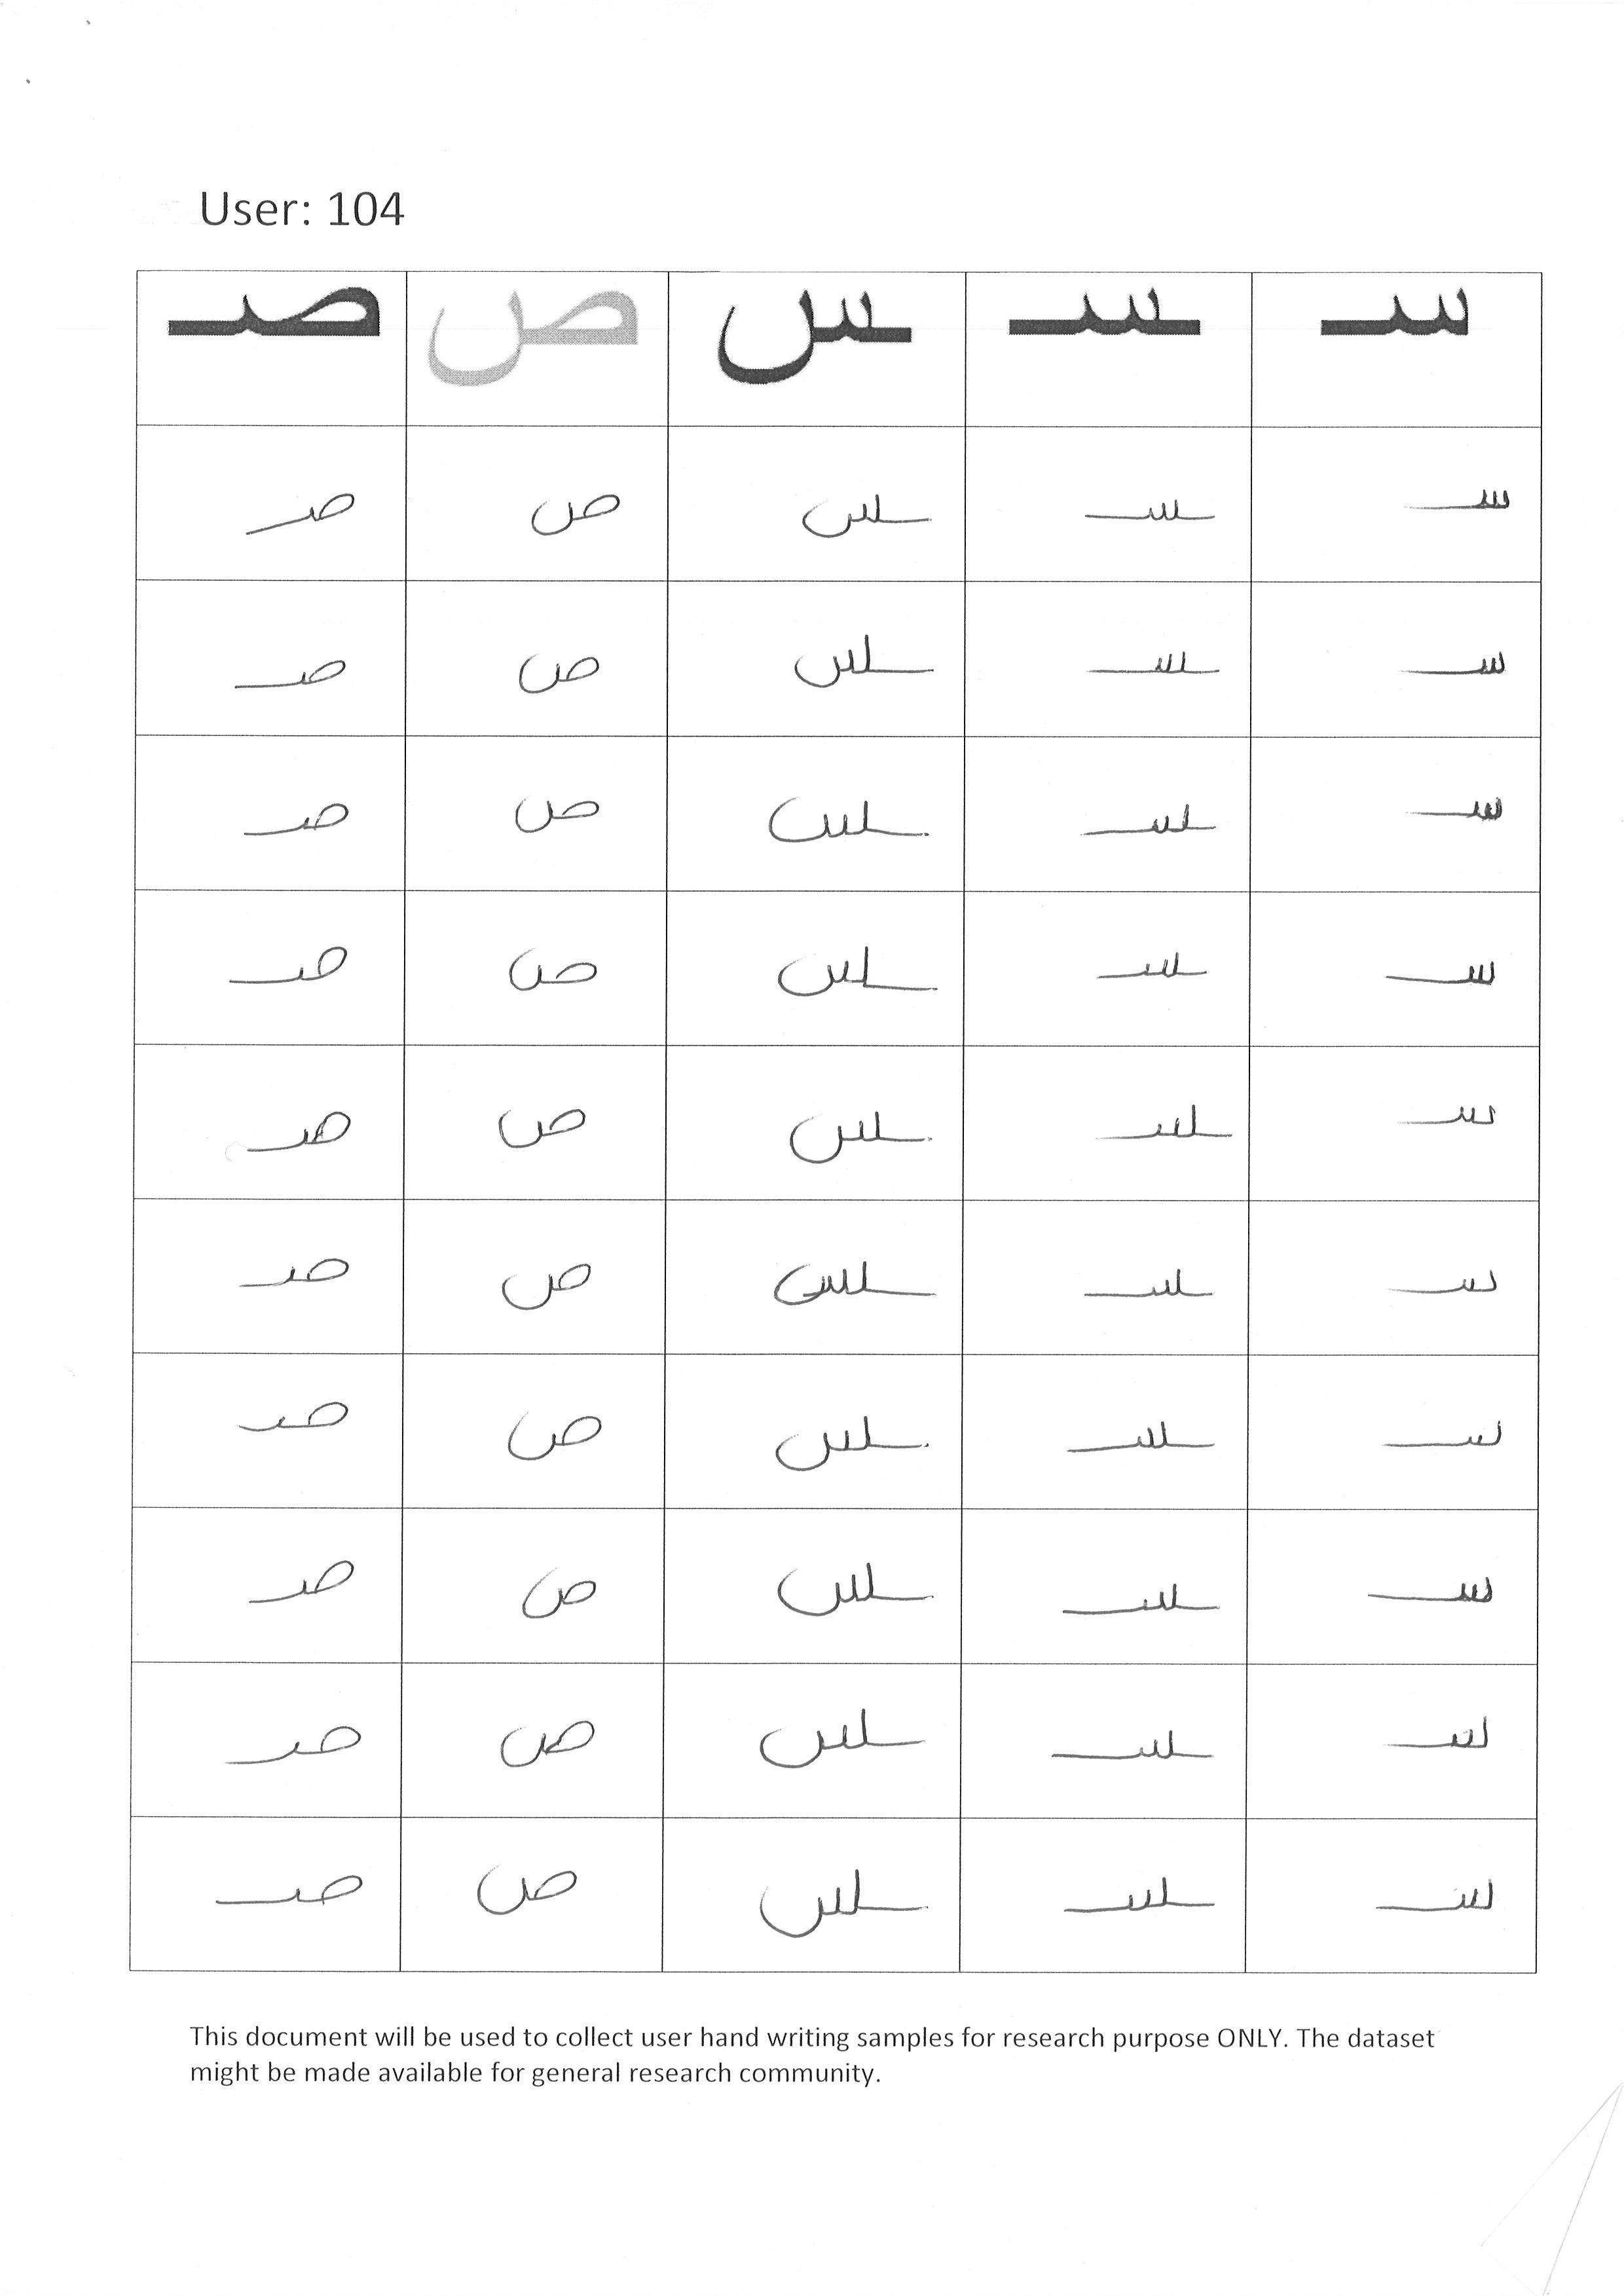 User: 104
سـ ـسـ ـس ص صـ
سـ ـسـ ـس ص صـ
سـ ـسـ ـس ص صـ
سـ ـسـ ـس ص صـ
سـ ـسـ ـس ص صـ
سـ ـسـ ـس ص صـ
سـ ـسـ ـس ص صـ
سـ ـسـ ـس ص صـ
سـ ـسـ ـس ص صـ
سـ ـسـ ـس ص صـ
سـ ـسـ ـس ص صـ
This document will be used to collect user hand writing samples for research purpose ONLY. The dataset
might be made available for general research community.